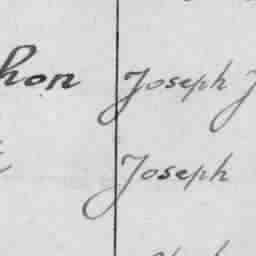 hon Joseph J
Joseph